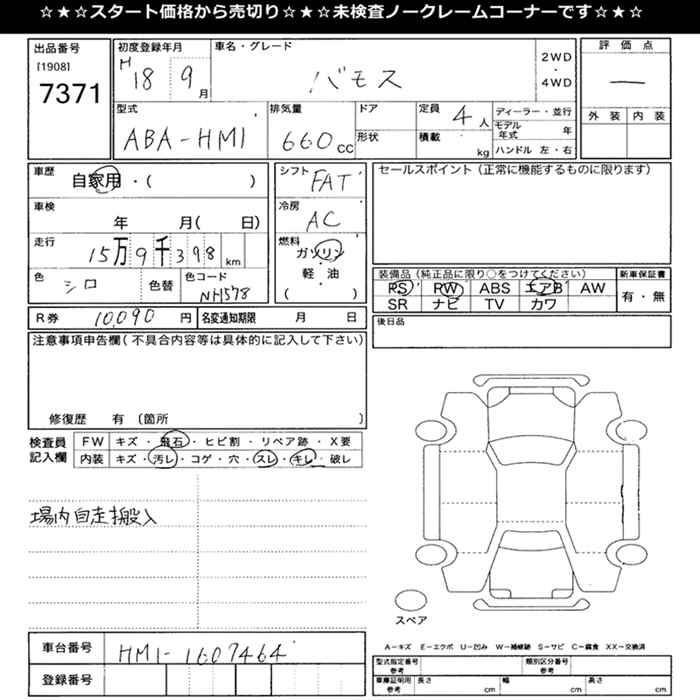 ☆★☆スタート価格から売切り☆★☆未検査ノークレームコーナーです☆★☆
出品番号
[1908]
7371
初度登録年月
H 18 9 月
車名・グレード
バモス
2WD
・
4WD
評価点
―
外装 内装
型式
ABA-HM1
排気量
660 CC
ドア
形状
定員
4 人
積載
kg
ディーラー・並行
モデル年式 年
ハンドル 左・右
車歴
自家用・( )
車検
年 月( 日)
走行
15万9千398 km
色
シロ
色替
色コード
NH578
シフト
FAT
冷房
AC
燃料
ガソリン
軽・油
( )
セールスポイント(正常に機能するものに限ります)
装備品(純正品に限り○をつけてください)
PS RW ABS エアB AW
SR ナビ TV カワ
新車保証書
有・無
後日品
R券 10,090 円
名変通知期限 月 日
注意事項申告欄(不具合内容等は具体的に記入して下さい)
修復歴 有(箇所 )
検査員
記入欄
FW キズ・飛石・ヒビ割・リペア跡・X要
内装 キズ・汚レ・コゲ・穴・スレ・キレ・破レ
場内自走搬入
スペア
A―キズ E―エクボ U―凹み W―補修跡 S―サビ C―腐食 XX―交換済
車台番号 HM1-1607464
登録番号
型式指定番号
参考
類別区分番号
参考
車庫証明用
参考
長さ cm 幅 cm 高さ cm